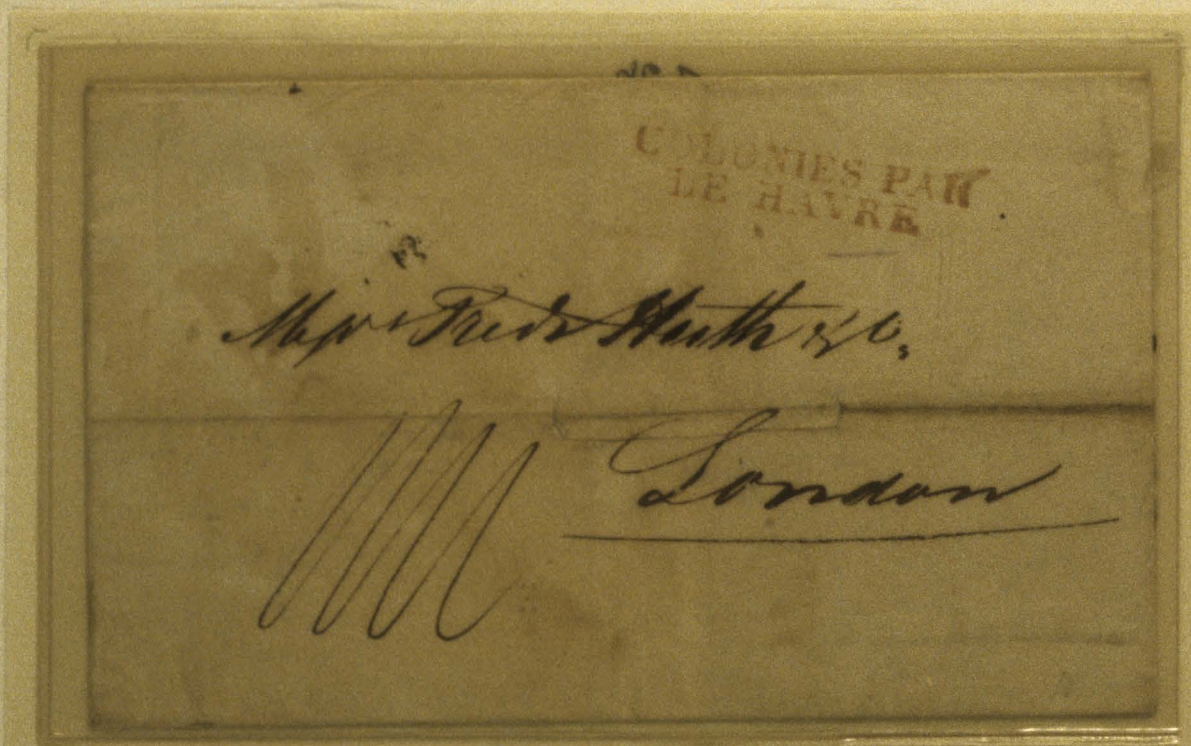 COLONIES PAR
LE HAVRE
Messrs Fredk Huth & Co.
London